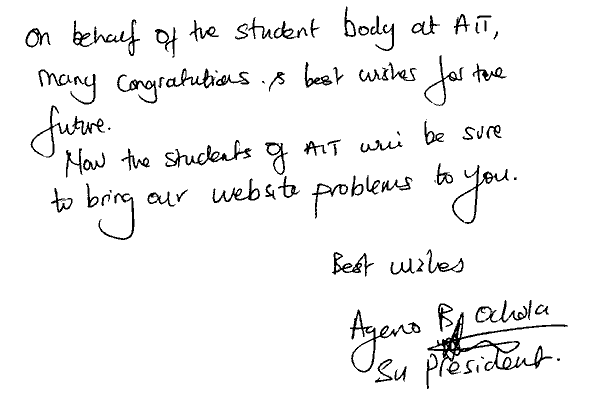 On behalf of the student body at AIT,
many congratutions & best wishes for the
future.
Now the students of AIT will be sure
to bring our website problems to you.
Best wishes
Ageno B Ochola
SU President.